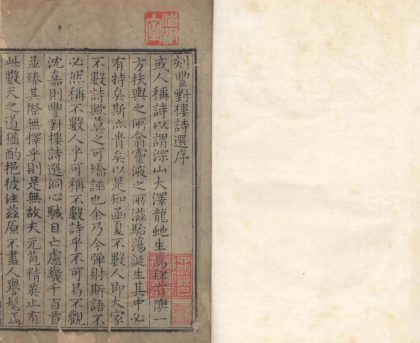 刻豐對樓詩選序
或人稱詩以謂深山大澤龍虵生焉肆有隩一
方扶輿之所翕靈液之所滋駘蕩誕生其中必
有特矣斯亦貴矣以是知函夏不數人即大家
不數詩輿葛之可擿誣也余乃今彈射斯語不
必然稱不數人乎可稱不數詩乎不可曷不觀
沈嘉則豐對樓詩選洞心駴目亡慮幾千百首
並臻其際無擇乎則是無故夫元黃精英止有
此數天之道猶酌挹彼注茲原不盡人與